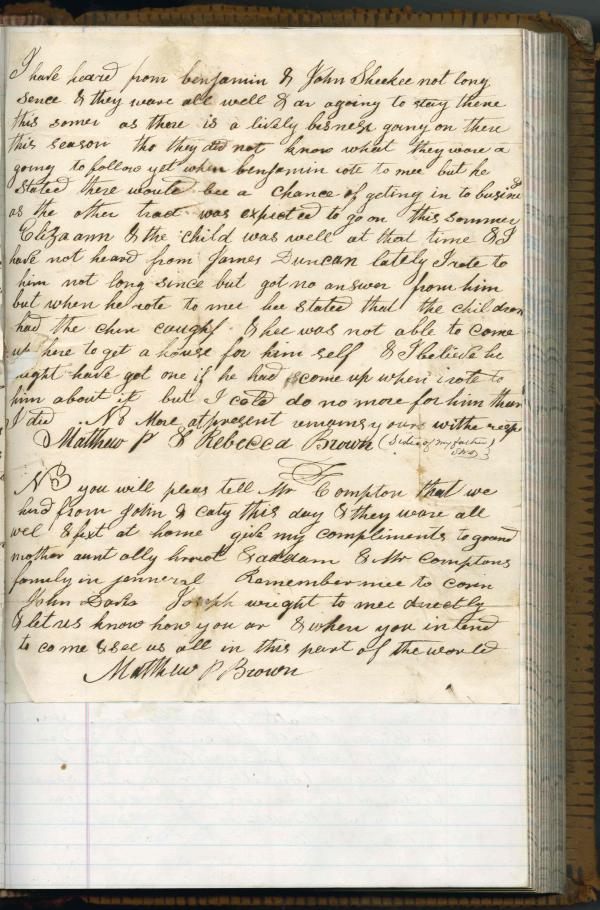 I have heard from benjamin & John Sheekee not long
sence & they ware all well & ar agoing to stay there
this somer as there is a lively bisness going on there
this season tho they did not know what they ware a
going to follow yet when benjamin rote to mee but he
stated there would bee a chance of geting in to busine
as the other tract was expected to go on this sommer
Elizaann & the child was well at that time & I
have not heard from James Duncan lately I rote to
him not long since but got no answer from him
but when he rote to mee hee stated that the children
had the chin caugh & hee was not able to come
up here to get a house for him self & I believe he
might have got one if he had come up when i rote to
him about it but I cold do no more for him than
I did NB More at present remains yours withe respe
Matthew P & Rebecca Brown (Sister of my father
NB you will pleas tell Mr Compton that we
hird from John & Caty this day & they ware all
wel & fixt at home give my compliments to grand
mother aunt ally & addam & Mr Comptons
family in jenneral Remember mee to
John Davis Joseph wright to mee directly
& let us know how you ar & when you intend
to come & see us all in this part of the world
Matthew P Brown